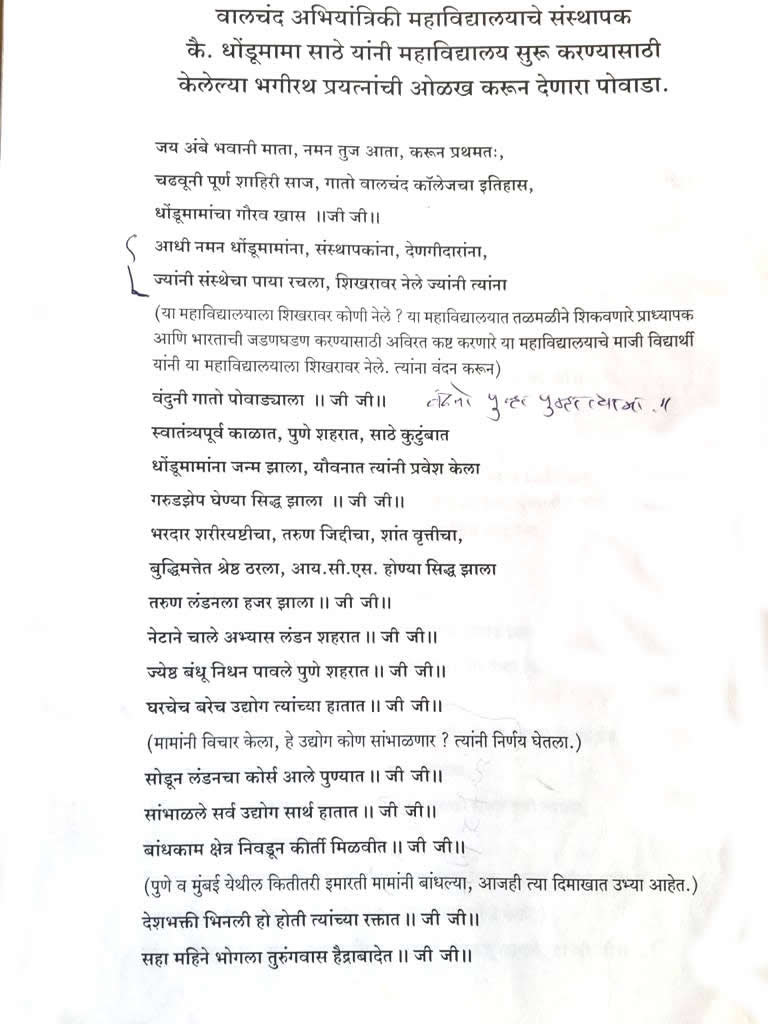 वालचंद अभियांत्रिकी महाविद्यालयाचे संस्थापक
कै. धोंडूमामा साठे यांनी महाविद्यालय सुरू करण्यासाठी
केलेल्या भगीरथ प्रयत्नांची ओळख करून देणारा पोवाडा.
जय अंबे भवानी माता, नमन तुज आता, करून प्रथमतः,
चढवूनी पूर्ण शाहिरी साज, गातो वालचंद कॉलेजचा इतिहास,
धोंडूमामांचा गौरव खास ॥जी जी॥
आधी नमन धोंडूमामांना, संस्थापकांना, देणगीदारांना,
ज्यांनी संस्थेचा पाया रचला, शिखरावर नेले ज्यांनी त्यांना
(या महाविद्यालयाला शिखरावर कोणी नेले ? या महाविद्यालयात तळमळीने शिकवणारे प्राध्यापक
आणि भारताची जडणघडण करण्यासाठी अविरत कष्ट करणारे या महाविद्यालयाचे माजी विद्यार्थी
यांनी या महाविद्यालयाला शिखरावर नेले. त्यांना वंदन करून)
वंदुनी गातो पोवाड्याला ॥ जी जी॥ पुन्हा पुन्हा त्यांना .॥
स्वातंत्र्यपूर्व काळात, पुणे शहरात, साठे कुटुंबात
धोंडूमामांना जन्म झाला, यौवनात त्यांनी प्रवेश केला
गरुडझेप घेण्या सिद्ध झाला ॥ जी जी॥
भरदार शरीरयष्टीचा, तरुण जिद्दीचा, शांत वृत्तीचा,
बुद्धिमत्तेत श्रेष्ठ ठरला, आय.सी.एस. होण्या सिद्ध झाला
तरुण लंडनला हजर झाला॥ जी जी॥
नेटाने चाले अभ्यास लंडन शहरात॥ जी जी॥
ज्येष्ठ बंधू निधन पावले पुणे शहरात॥ जी जी॥
घरचेच बरेच उद्योग त्यांच्या हातात॥ जी जी॥
(मामांनी विचार केला, हे उद्योग कोण सांभाळणार ? त्यांनी निर्णय घेतला.)
सोडून लंडनचा कोर्स आले पुण्यात॥ जी जी॥
सांभाळले सर्व उद्योग सार्थ हातात॥ जी जी॥
बांधकाम क्षेत्र निवडून कीर्ती मिळवीत॥ जी जी॥
(पुणे व मुंबई येथील कितीतरी इमारती मामांनी बांधल्या, आजही त्या दिमाखात उभ्या आहेत.)
देशभक्ती भिनली हो होती त्यांच्या रक्तात॥ जी जी॥
सहा महिने भोगला तुरुंगवास हैद्राबादेत॥ जी जी॥